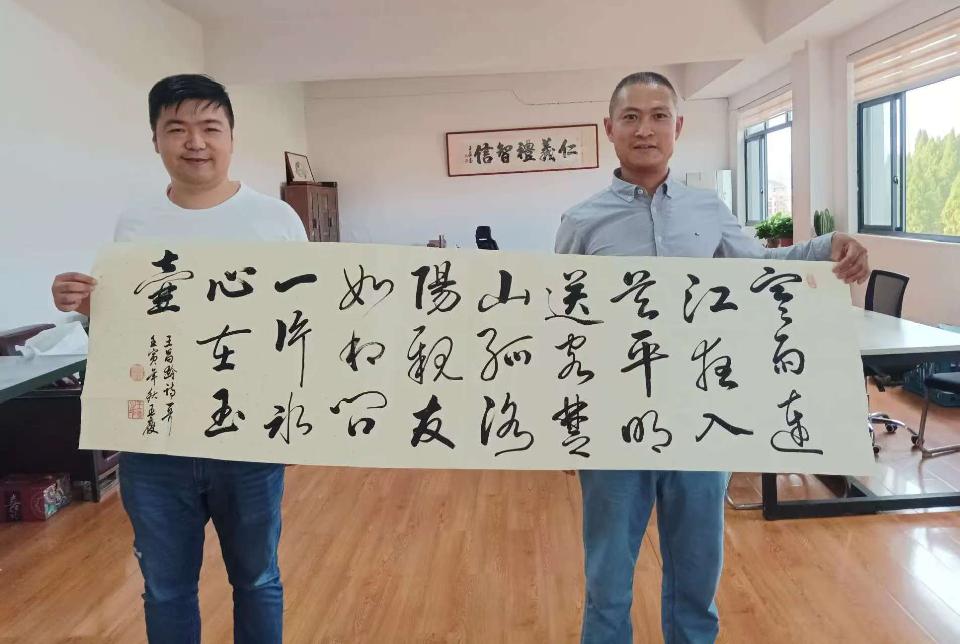 仁義禮智信
寒雨連
江夜入
吴平明
送客楚
山孤洛
陽親友
如相問
一片冰
心在玉
壺
王昌齡詩一首
壬寅年秋